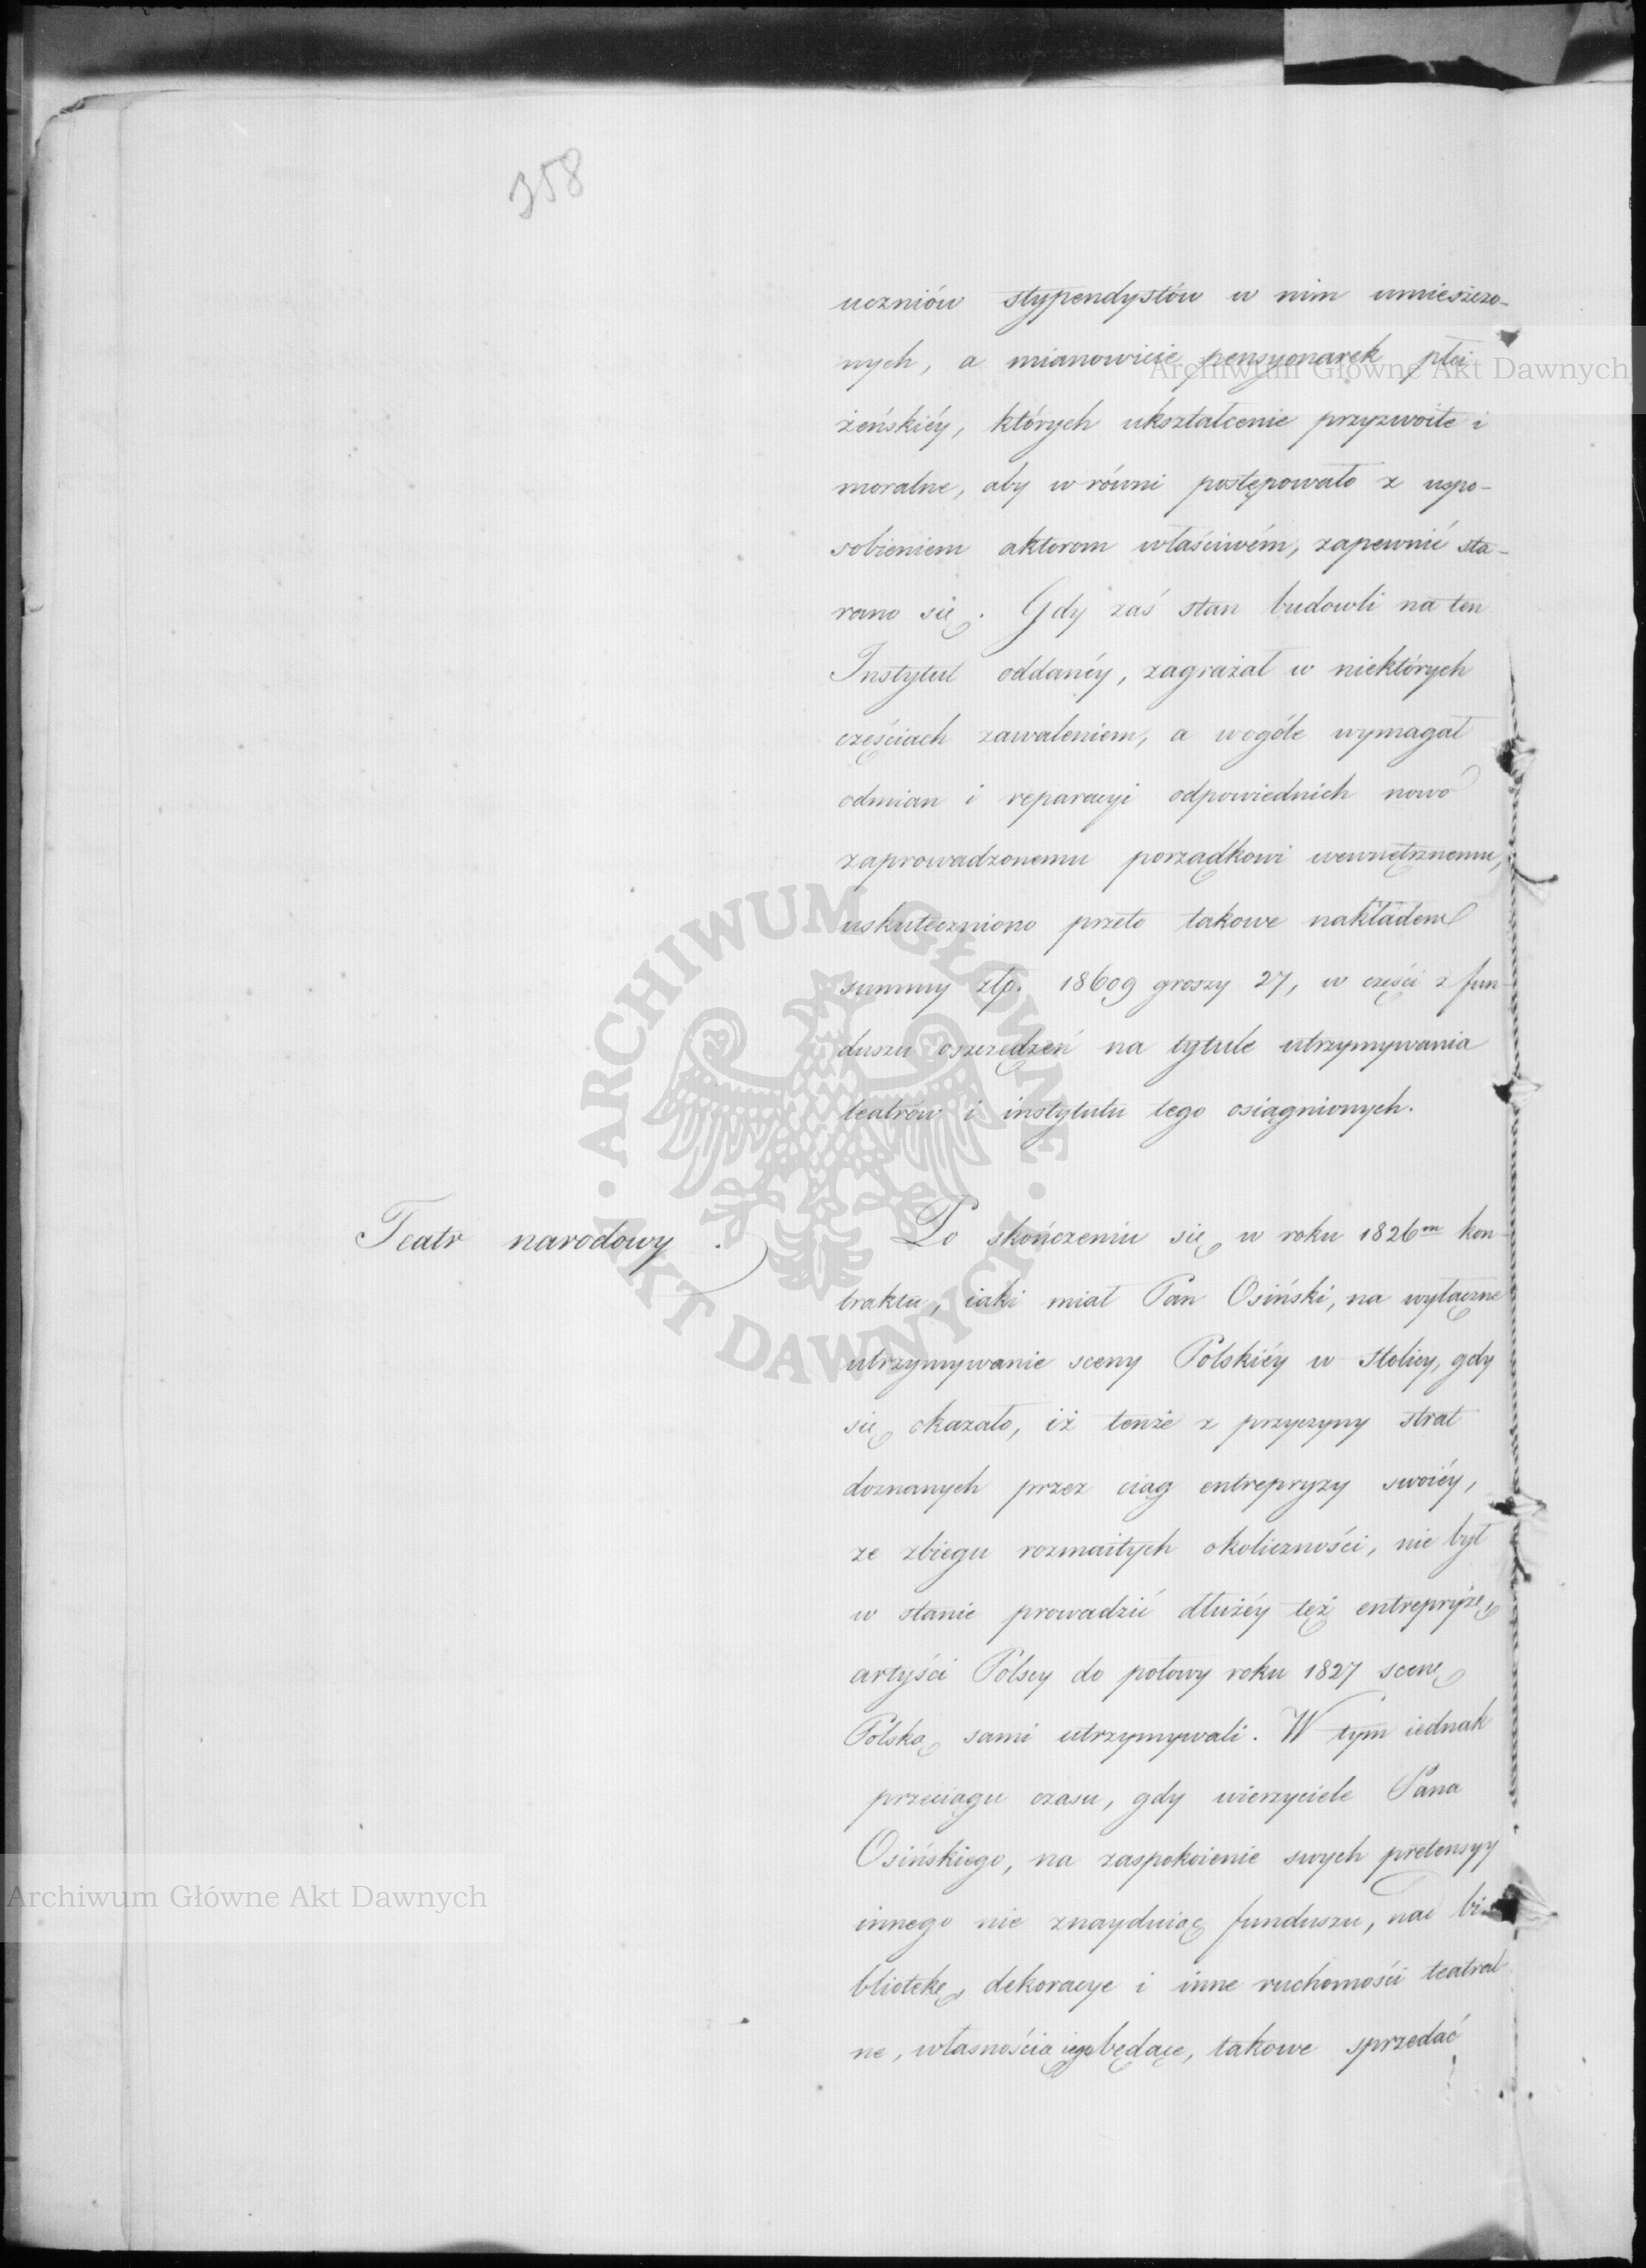 358
uczniów stypendystów w nim umieszczo-
nych, a mianowicie pensyonarek płci
żeńskiéy, których ukształcenie przyzwoite i
moralne, aby w równi postępowało z uspo-
sobieniem aktorom właściwém, zapewnić sta-
rano się. Gdy zaś stan budowli na ten
Instytut oddanéy, zagrażał w niektórych
częściach zawaleniem, a wogóle wymagał
odmian i reparacyi odpowiednich nowo
zaprowadzonemu porządkowi wewnętrznemu,
uskuteczniono przeto takowe nakładem
summy złp. 18609 groszy 27, w części z fun-
duszu oszczędzeń na tytule utrzymywania
teatrów i instytutu tego osiągnionych.
Teatr narodowy.
Po skończeniu się w roku 1826m kon-
traktu, iaki miał Pan Osiński, na wyłączne
utrzymywanie sceny Polskiéy w Stolicy, gdy
się okazało, iż tenże z przyczyny strat
doznanych przez ciąg entrepryzy swoiéy,
ze zbiegu rozmaitych okoliczności, nie był
w stanie prowadzić dłużéy też entrepryzę,
artyści Polscy do połowy roku 1827 scenę
Polską sami utrzymywali. W tym iednak
przeciągu czasu, gdy wierzyciele Pana
Osińskiego, na zaspokoienie swych pretensyy
innego nie znayduiąc funduszu, nad bi-
bliotekę, dekoracye i inne ruchomości teatral-
ne, własnością iego będące, takowe sprzedać
Archiwum Główne Akt Dawnych
Archiwum Główne Akt Dawnych
ARCHIWUM GŁÓWNE AKT DAWNYCH